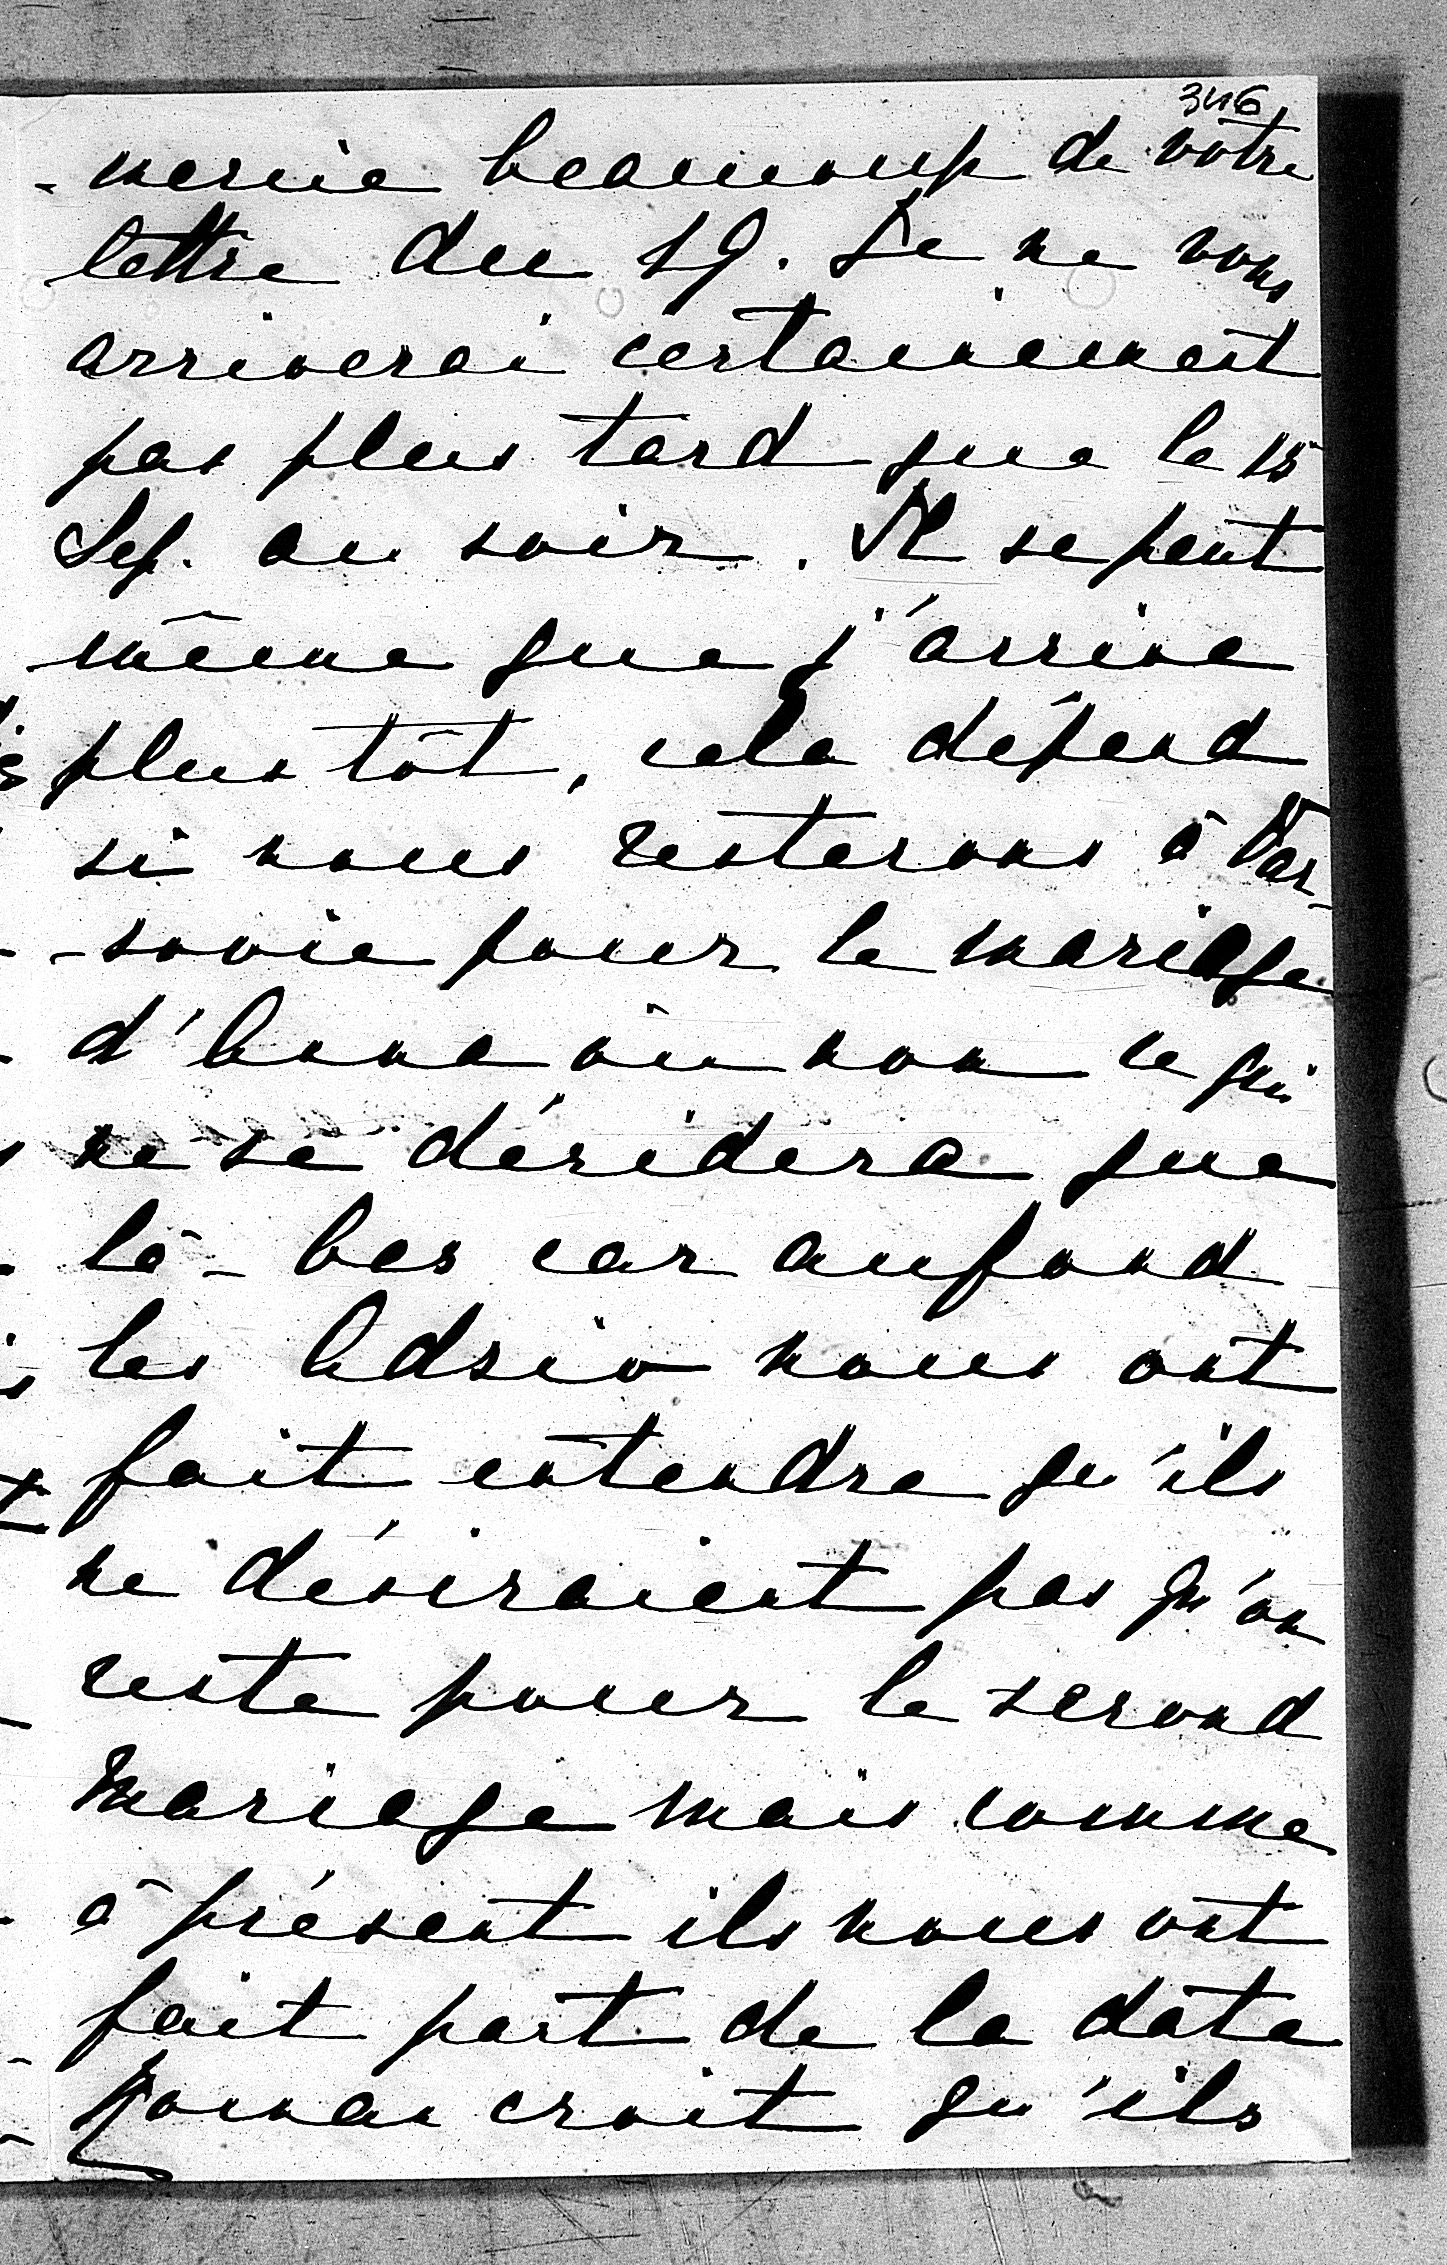 346
-mercie beaucoup de votre
lettre du 19. Je ne vous
arriverai certainement
pas plus tard que le 15
Sep. au soir. Il se peut
même que j'arrive
plus tôt, cela dépend
si nous resterons à Var-
-sovie pour le mariage
d'Anna ou non ce qui
ne se décidera que
là-bas car au fond
les Adsio nous ont
fait entendre qu'ils
ne désiraient pas qu'on
reste pour le second
mariage mais comme
à présent ils nous ont
fait part de la date
Roman croit qu'ils